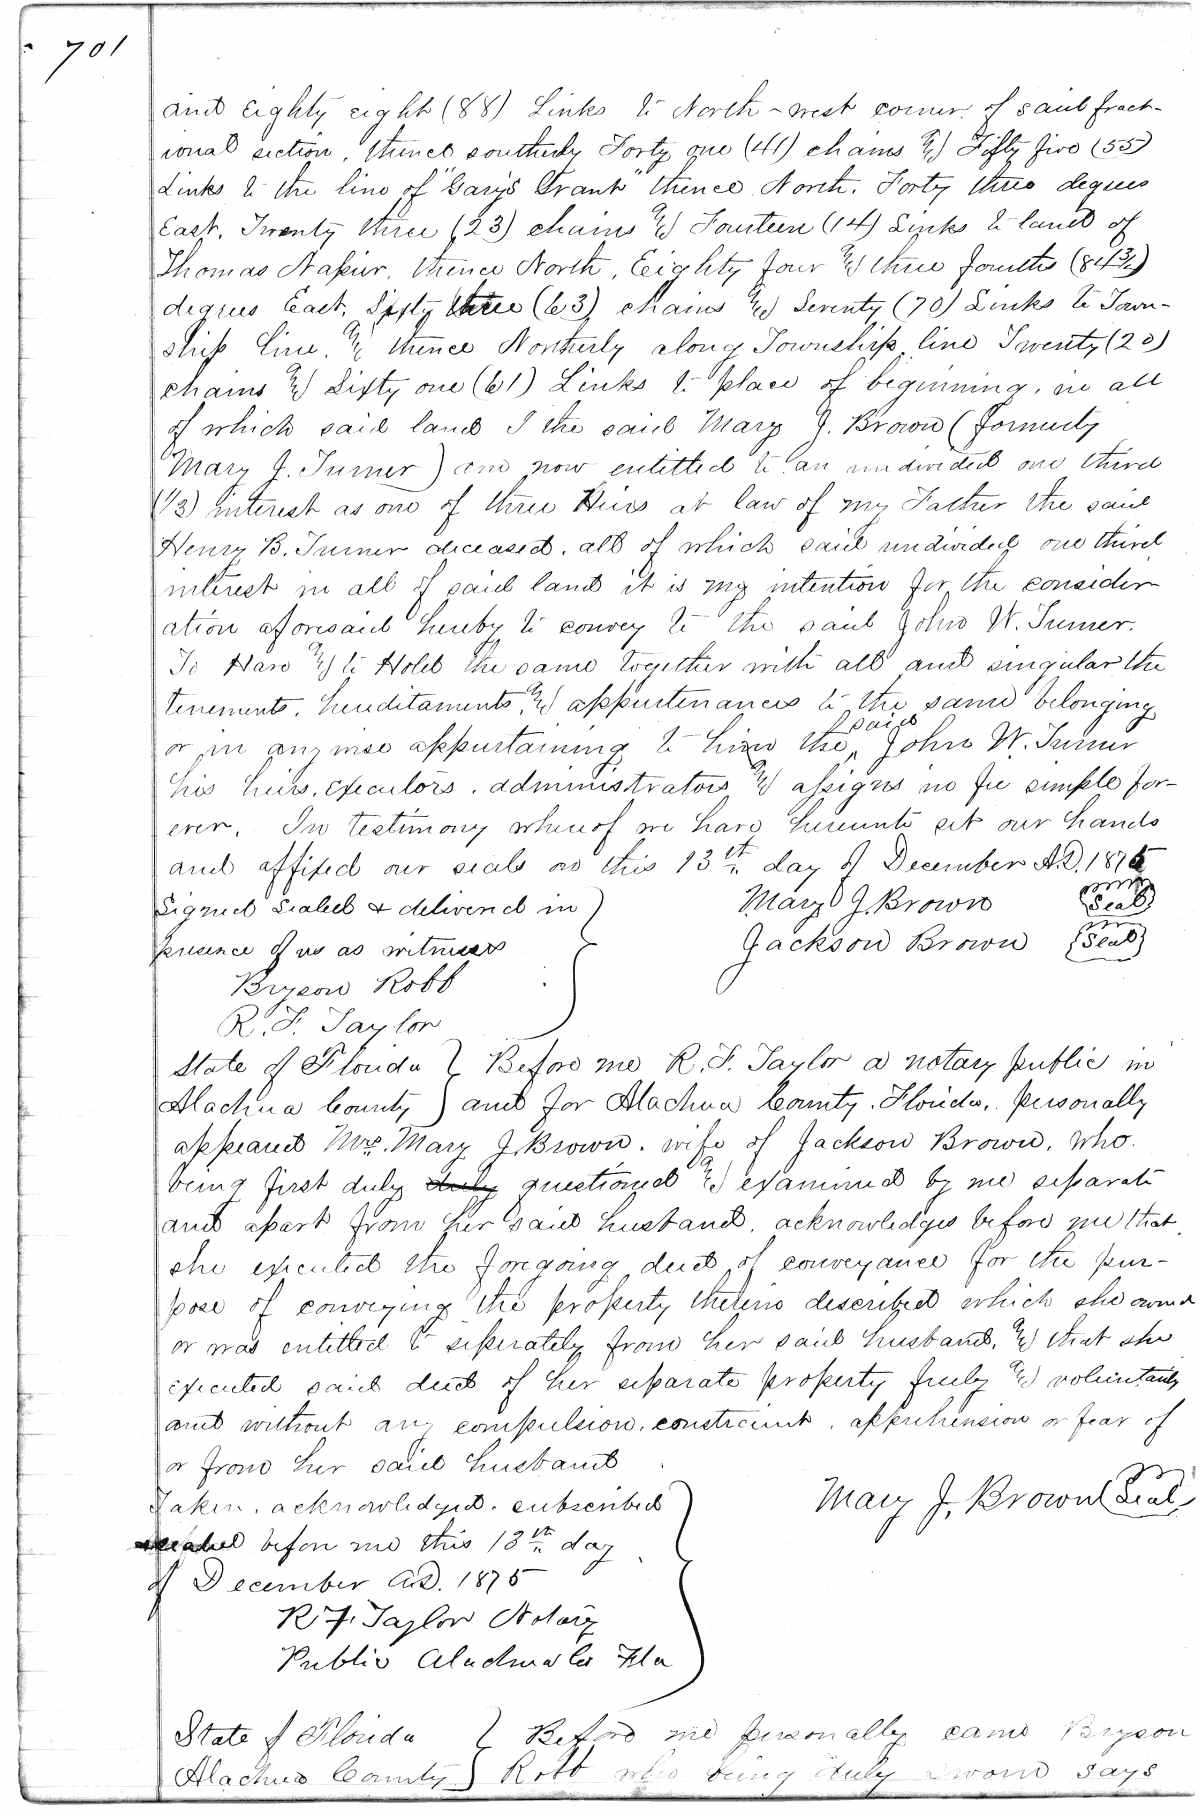 701
and Eighty eight (88) Links to North-west corner of said fract-
ional section, thence southerly Forty one (41) chains & Fifty five (55)
Links to the line of "Garys Grant" thence North, Forty three degrees
East, Twenty three (23) chains & Fourteen (14) Links to land of
Thomas Napier, thence North, Eighty four & three fourths (84¾)
degrees East, Sixty three (63) chains & Seventy (70) Links to Town-
ship line, & thence Northerly along Township line Twenty (20)
chains & Sixty one (61) Links to place of beginning, in all
of which said land I the said Mary J. Brown (formerly
Mary J. Turner) am now entitled to an undivided one third
(1/3) interest as one of three Heirs at law of my Father the said
Henry B. Turner deceased. all of which said undivided one third
interest in all of said land it is my intention for the consider-
ation aforesaid hereby to convey to the said John W. Turner.
To Have & to Hold the same together with all and singular the
tenements, hereditaments, & appurtenances to the same belonging
or in anywise appurtaining to him the said John W. Turner
his heirs, executors, administrators & assigns in fee simple for-
ever. In testimony whereof we have hereunto set our hands
and affixed our seals on this 13th day of December A.D. 1875
Signed Sealed & delivered in Mary J. Brown (Seal)
presence of us as witnesses Jackson Brown (Seal)
Bryson Robb
R. F. Taylor
State of Florida } Before me R. F. Taylor a notary public in
Alachua County } and for Alachua County, Florida, personally
appeared Mrs. Mary J. Brown, wife of Jackson Brown, who
being first duly duly questioned & examined by me separate
and apart from her said husband, acknowledges before me that
she executed the foregoing deed of conveyance for the pur-
pose of conveying the property therein described which she owned
or was entitled to seperately from her said husband, & that she
executed said deed of her separate property freely & voluntarily
and without any compulsion, constraint, apprehension or fear of
or from her said husband
Taken, acknowledged, subscribed Mary J. Brown (Seal)
sealed before me this 13th day
of December A.D. 1875
R. F. Taylor Notary
Public Alachua Co Fla
State of Florida } Before me personally came Bryson
Alachua County } Robb who being duly sworn says